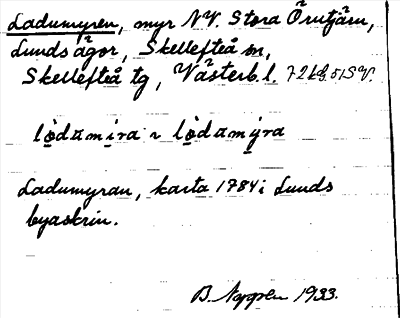 Ladumyren, myr NV. Stora Örutjärn,
Lunds ägor, Skellefteå sn,
Skellefteå tg, Västerb. l.
lo̲dami̲ra ~ lo̲damy̲ra
Ladumyran, karta 1784 i Lunds
byaskrin.
B. 1933.